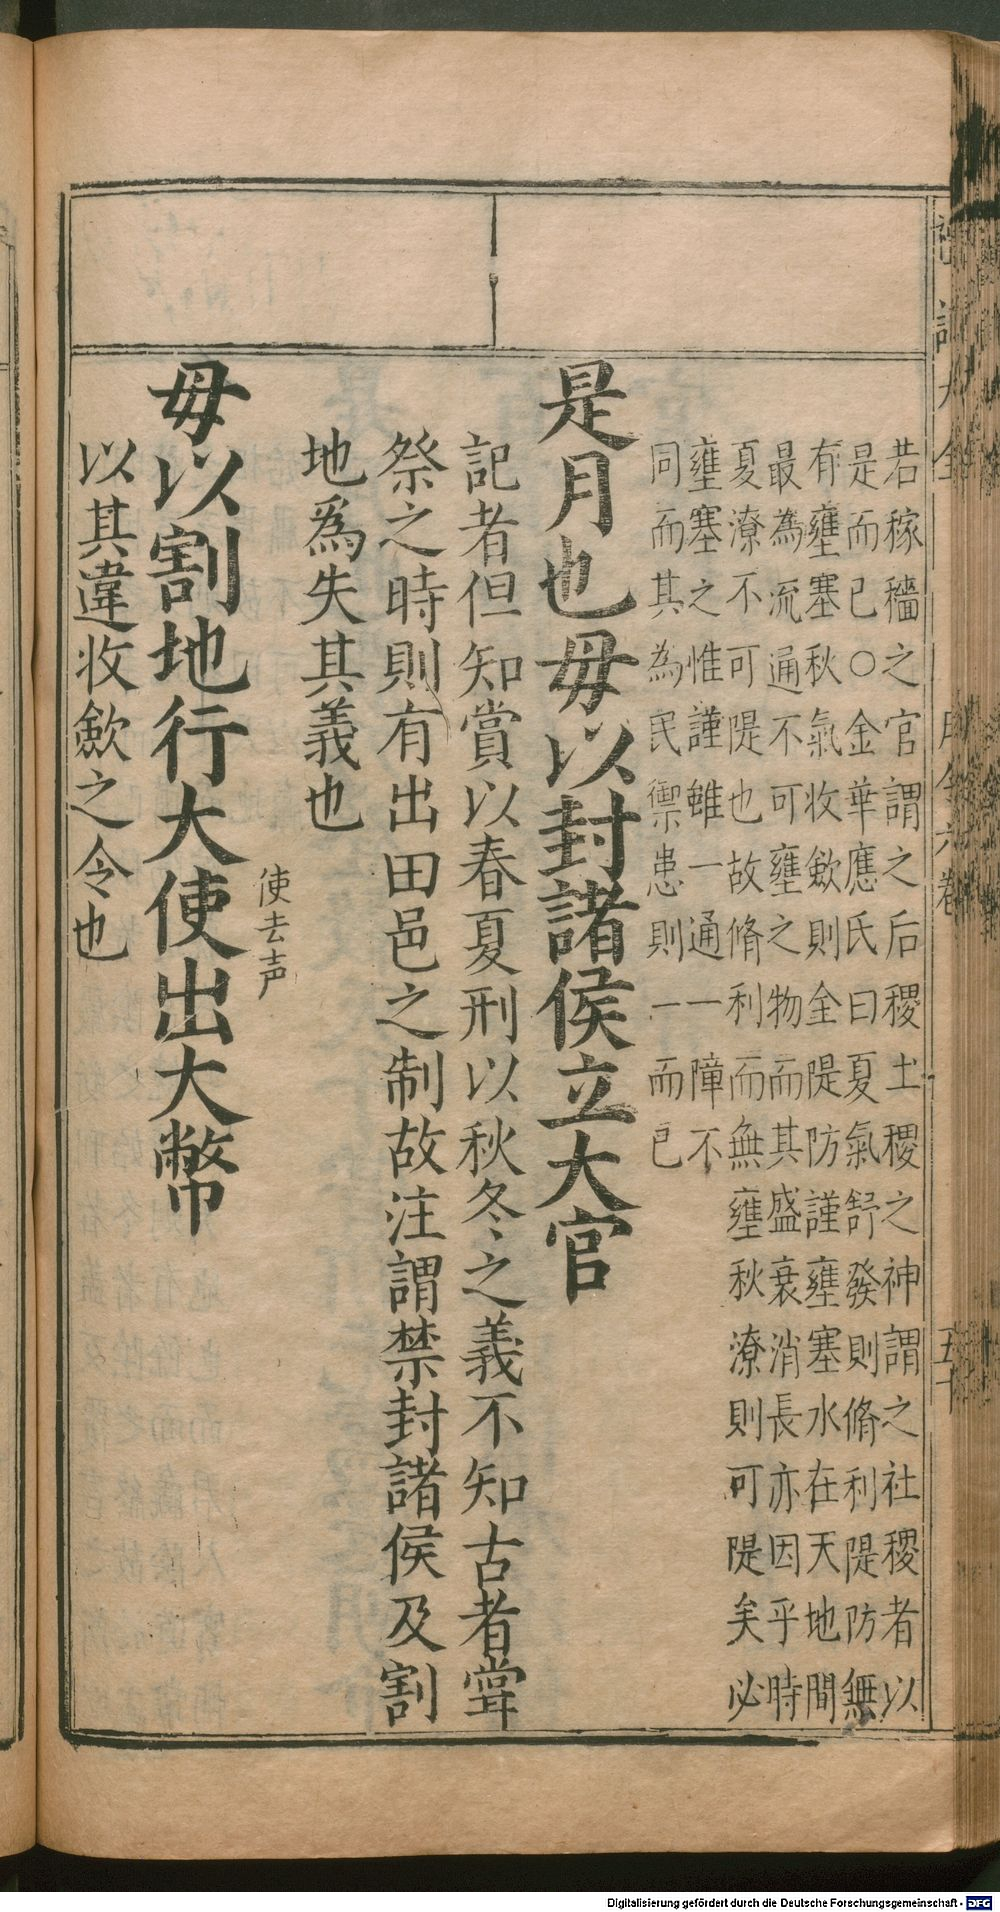 大全 月令六卷 五十
若稼穡之官謂之后稷土稷之神謂之社稷者以
是而已○金華應氏曰夏氣舒發則脩利隄防無
有壅塞秋氣收斂則全隄防謹壅塞水在天地間
最為流通不可壅之物而其盛衰消長亦因乎時
夏潦不可隄也故脩利而無壅秋潦則可隄矣必
壅塞之惟謹雖一通一障不
同而其為民禦患則一而已
是月也毋以封諸侯立大官
記者但知賞以春夏刑以秋冬之義不知古者甞
祭之時則有出田邑之制故注謂禁封諸侯及割
地爲失其義也
使去声
毋以割地行大使出大幣
以其違收斂之令也
Digitalisierung gefördert durch die Deutsche Forschungsgemeinschaft - DFG